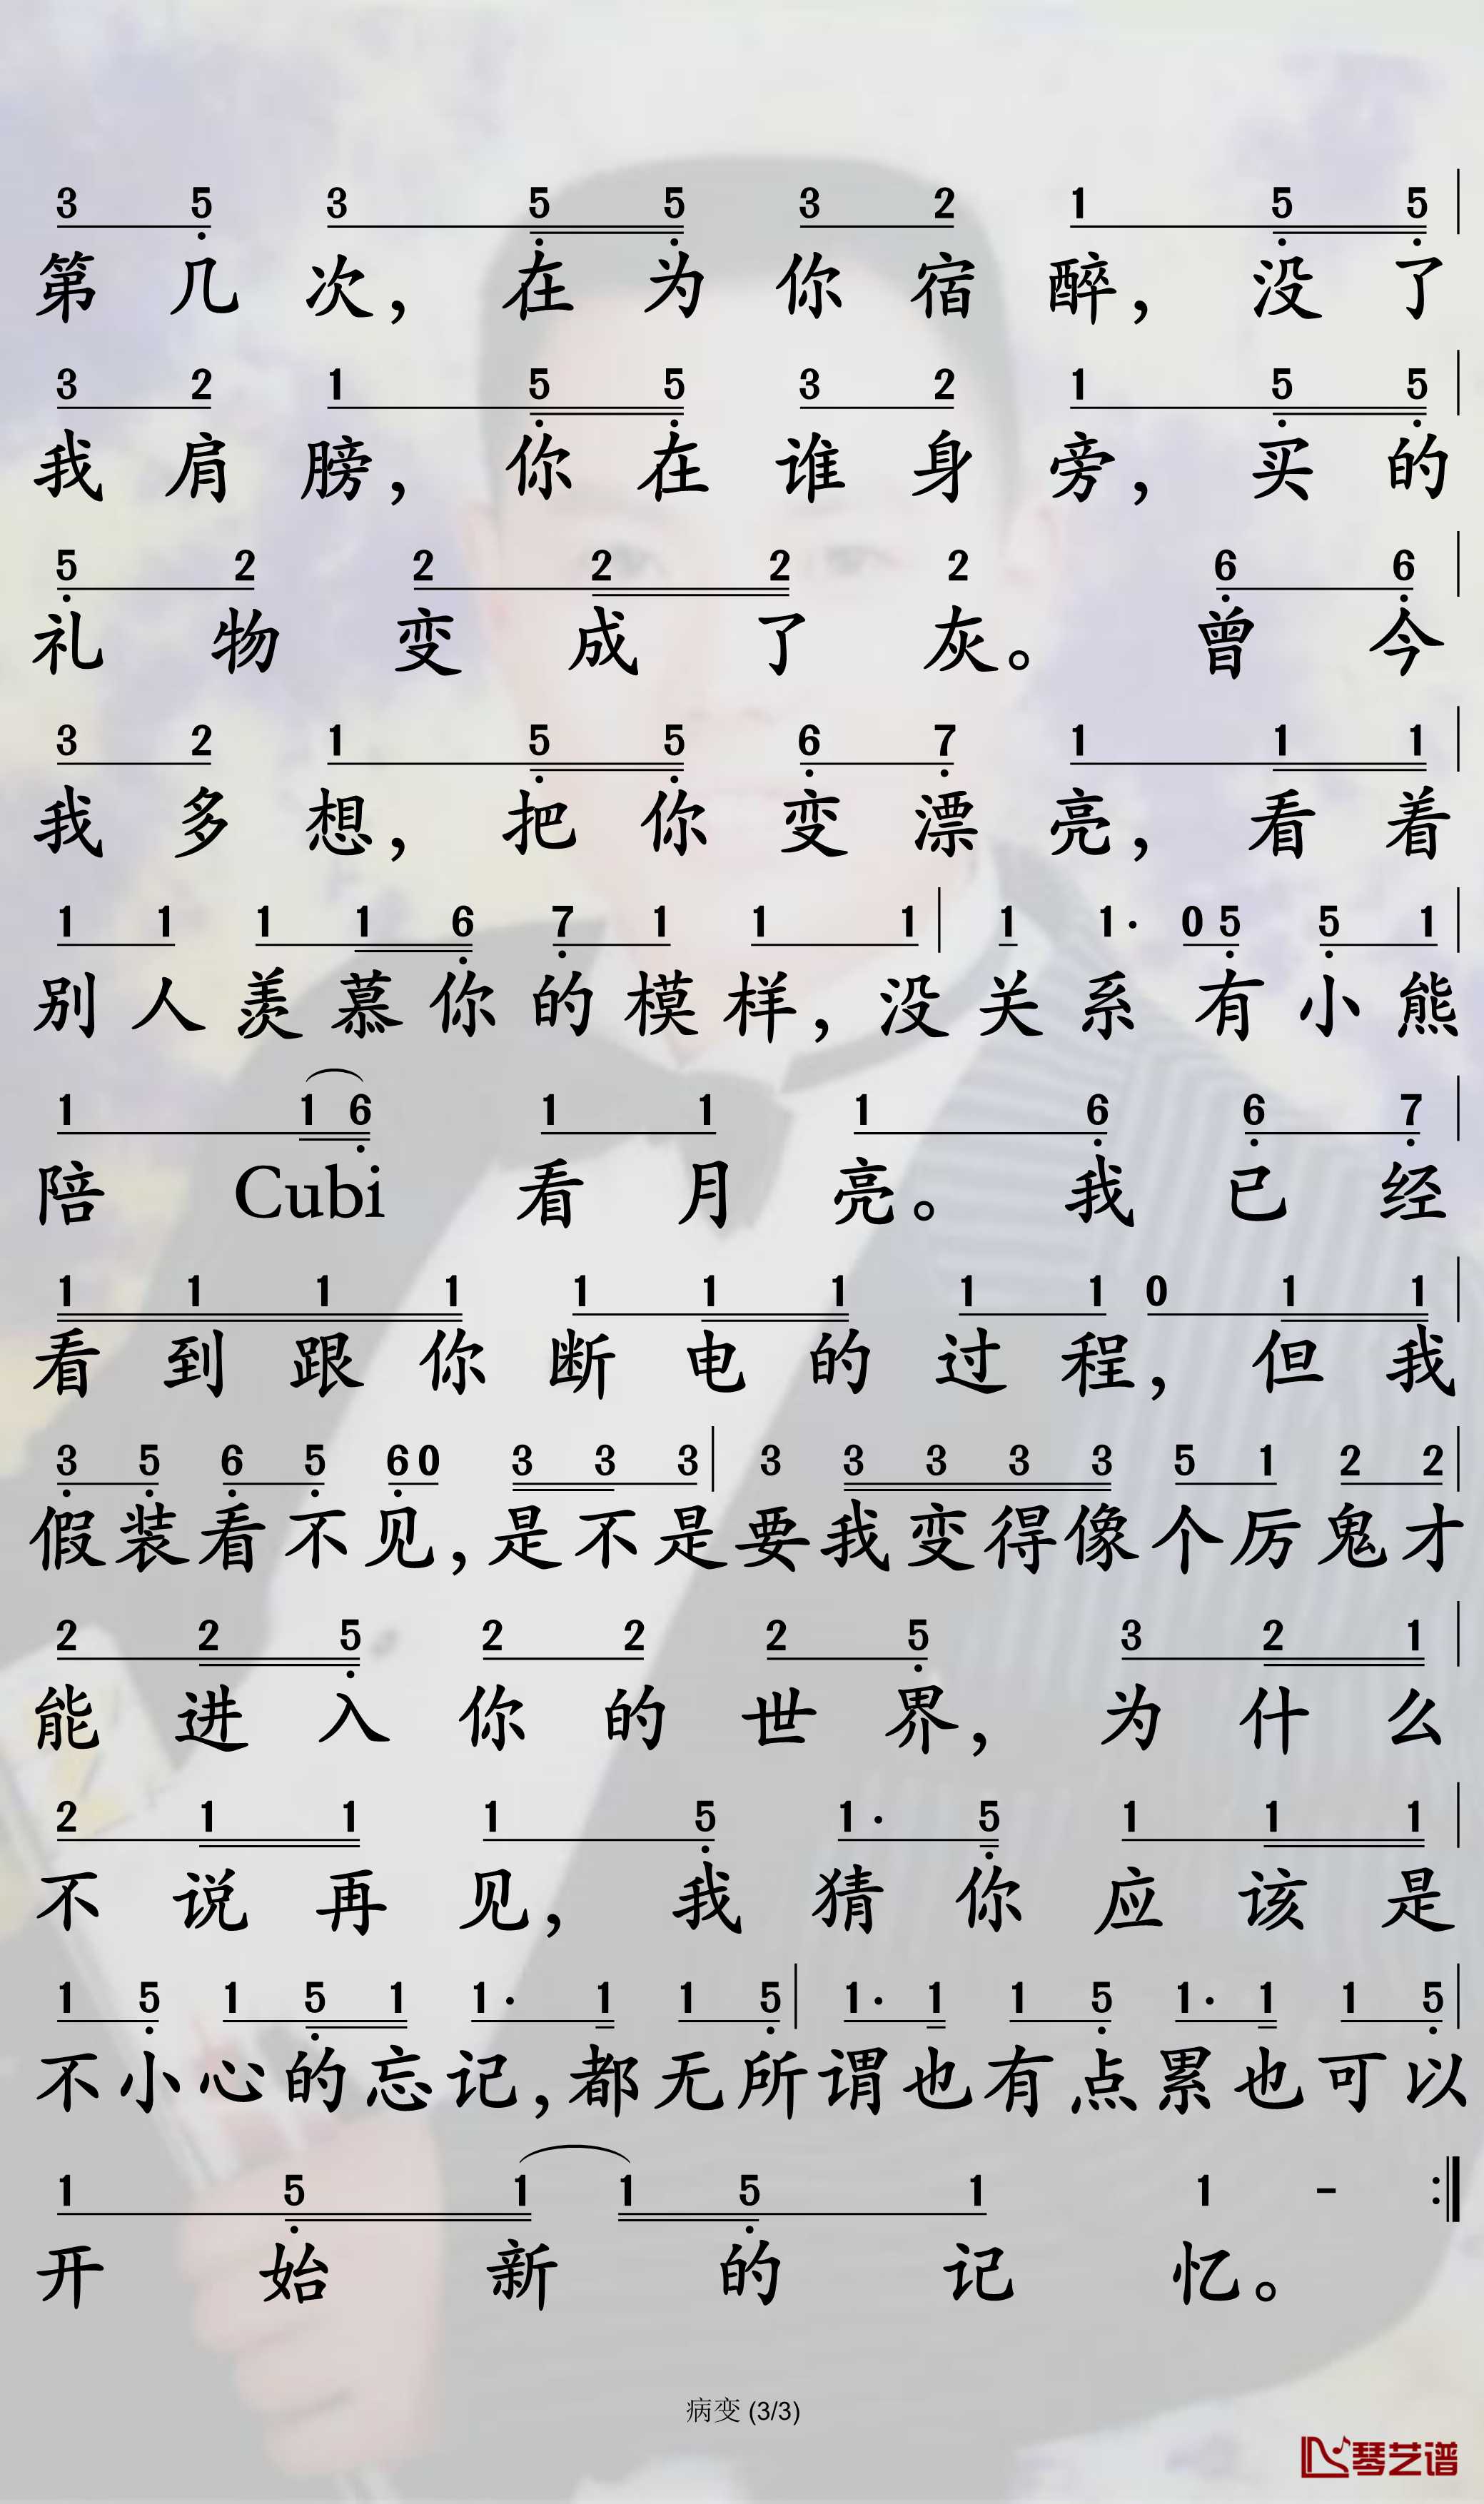 3 5 3 5 5 3 2 1 5 5
第几次，在为你宿醉，没了
3 2 1 5 5 3 2 1 5 5
我肩膀，你在谁身旁，买的
5 2 2 2 2 2 6 6
礼物变成了灰。曾今
3 2 1 5 5 6 7 1 1 1
我多想，把你变漂亮，看着
1 1 1 1 6 7 1 1 1 1 1· 0 5 5 1
别人羡慕你的模样，没关系有小熊
1 1 6 1 1 1 6 6 7
陪Cubi看月亮。我已经
1 1 1 1 1 1 1 1 1 0 1 1
看到跟你断电的过程，但我
3 5 6 5 6 0 3 3 3 3 3 3 3 3 5 1 2 2
假装看不见，是不是要我变得像个厉鬼才
2 2 5 2 2 2 5 3 2 1
能进入你的世界，为什么
2 1 1 1 5 1· 5 1 1 1
不说再见，我猜你应该是
1 5 1 5 1 1· 1 1 5 1· 1 1 5 1· 1 1 5
不小心的忘记，都无所谓也有点累也可以
1 5 1 1 5 1 1 -
开始新的记忆。
病变 (3/3)
琴艺谱